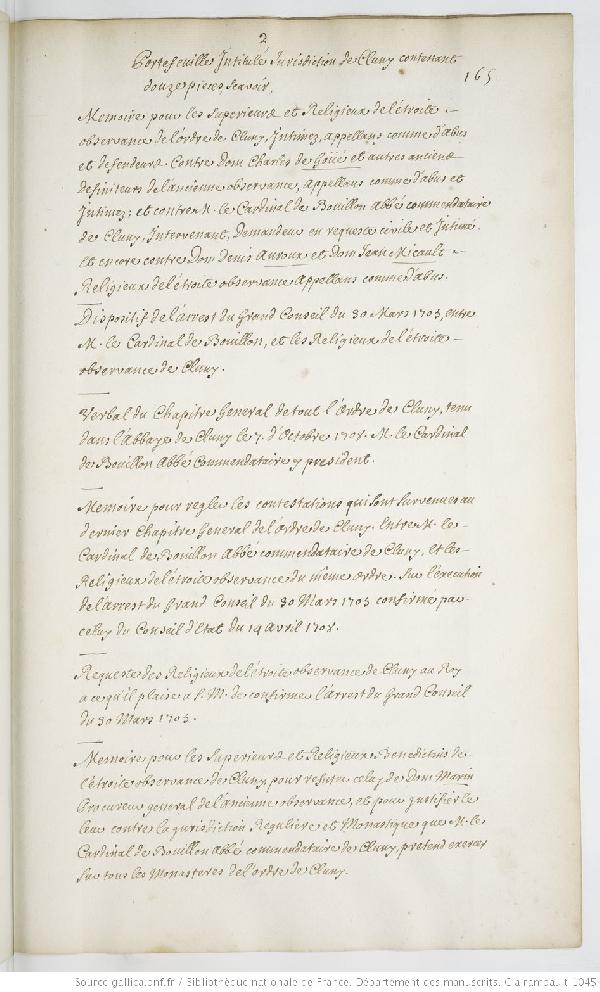 2
Portefeuille Intitulé Jurisdiction de Cluny contenant
165
douze pieces scavoir,
Memoire pour les Superieurs et Religieux de l'étroite
observance de l'ordre de Cluny, Intimez, appellans comme d'abus
et defendeurs. Contre Dom Charles de Goüé et autres anciens
definiteurs de l'ancienne observance, appellans comme d'abus et
Intimez; et contre M. le Cardinal de Bouillon Abbé commendataire
de Cluny, Intervenant, Demandeur en requeste civile et Intimé.
et encore contre Dom Denis Auroux et Dom Jean Micault
Religieux de l'étroite observance Appellans comme d'abus.
Dispositif de l'arrest du Grand Conseil du 30 Mars 1705, entre
M. le Cardinal de Bouillon, et les Religieux de l'étroite
observance de Cluny.
Verbal du Chapitre General de tout l'Ordre de Cluny, tenu
dans l'Abbaye de Cluny le 7. d'Octobre 1708. M. le Cardinal
de Bouillon Abbé Commendataire y president.
Memoire pour regler les contestations qui sont survenues au
dernier Chapitre General de l'ordre de Cluny. Entre M. le
Cardinal de Bouillon Abbé commendataire de Cluny, et les
Religieux de l'étroite observance du même ordre. Sur l'execution
de l'arrest du Grand Conseil du 30 Mars 1705 confirmé par
celuy du Conseil d'Etat du 19 Avril 1708.
Requeste des Religieux de l'étroite observance de Cluny au Roy
a ce qu'il plaise a S. M. de confirmer l'arrest du Grand Conseil
du 30 Mars 1705.
Memoire pour les Superieurs et Religieux Benedictins de
l'étroite observance de Cluny, pour refuter celuy de Dom Marin
Procureur general de l'ancienne observance, et pour justifier le
leur contre la jurisdiction Reguliere et Monastique que M. le
Cardinal de Bouillon Abbé commendataire de Cluny, pretend exercer
sur tous les Monasteres de l'ordre de Cluny.
Source gallica.bnf.fr / Bibliothèque nationale de France. Département des manuscrits. Clairambault 1045